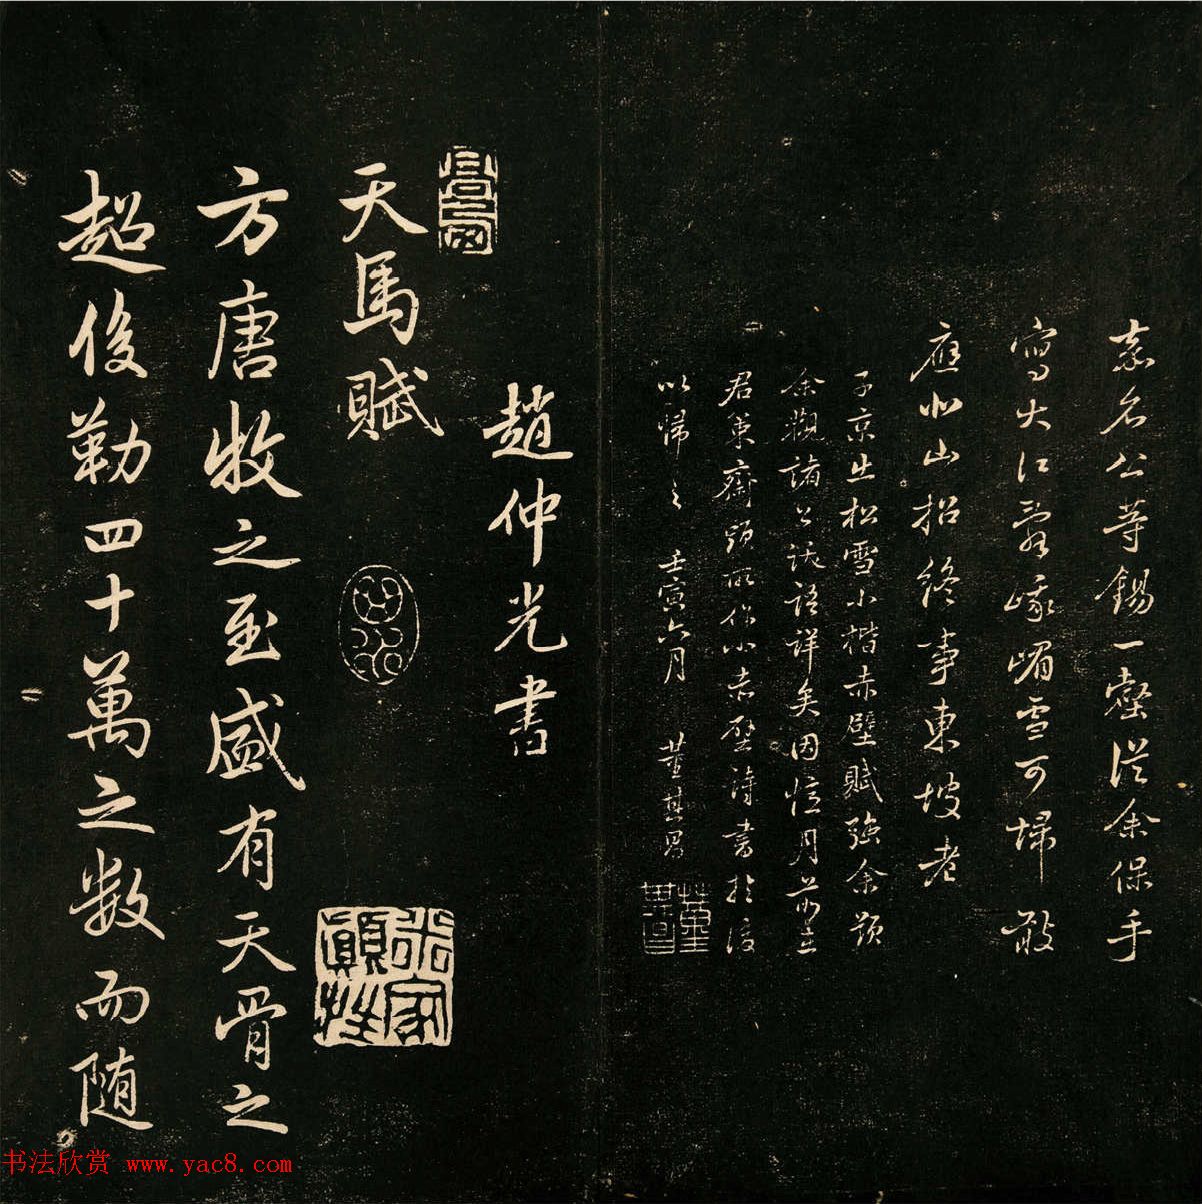 嘉名公等錫一壑從余保手
寫大江第峨嵋雪可歸散
應北山招終事東坡老
子京出松雪小楷赤壁賦強余題
余觀諸公跋語詳矣因憶月前至
君東齋頭所作小赤壁詩書於後
以歸之 壬寅六月 董其昌
趙仲光書
天馬賦
方唐牧之至盛有天骨之
超俊勒四十萬之數而隨
书法欣赏 www.yac8.com